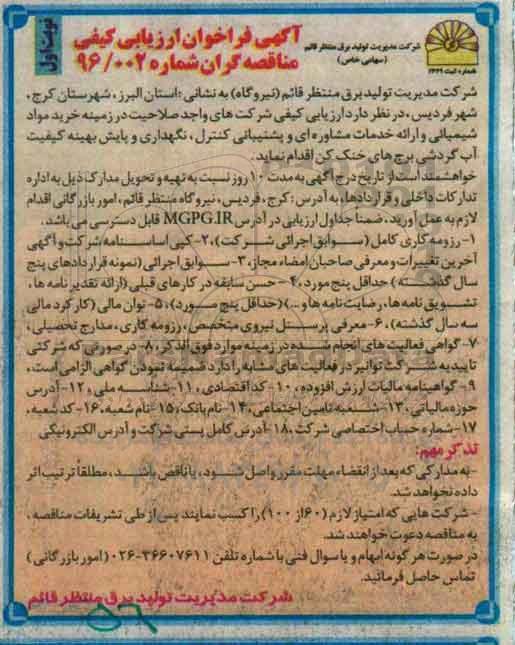 نوبت اول
آگهی فراخوان ارزیابی کیفی
مناقصه گران شماره ۹۶/۰۰۲
شرکت مدیریت تولید برق منتظر قائم
(سهامی خاص)
شماره ثبت
شرکت مدیریت تولید برق منتظر قائم (نیروگاه) به نشانی :استان البرز ، شهرستان کرج ،
شهر فردیس، در نظر دارد ارزیابی کیفی شرکت های واجد صلاحیت در زمینه خرید مواد
شیمیائی و ارائه خدمات مشاوره ای و پشتیبانی کنترل ، نگهداری و پایش بهینه کیفیت
آب گردشی برج های خنک کن اقدام نماید.
خواهشمند است از تاریخ درج آگهی به مدت ۱۰ روز نسبت به تهیه و تحویل مدارک ذیل به اداره
تدارکات داخلی و قراردادها، به آدرس : کرج، فردیس، نیروگاه منتظر قائم، امور بازرگانی اقدام
لازم به عمل آورید. ضمناً جداول ارزیابی در آدرس MGPG.IR قابل دسترسی می باشد.
۱- رزومه کاری کامل (سوابق اجرائی شرکت)، ۲- کپی اساسنامه شرکت و آگهی
آخرین تغییرات و معرفی صاحبان امضاء مجاز، ۳- سوابق اجرائی (نمونه قراردادهای پنج
سال گذشته) حداقل پنج مورد، ۴- حسن سابقه در کارهای قبلی (ارائه تقدیر نامه ها ،
تشویق نامه ها، رضایت نامه ها و ...) (حداقل پنج مورد)، ۵- توان مالی (کارکرد مالی
سه سال گذشته) ، ۶- معرفی پرسنل نیروی متخصص، رزومه کاری، مدارج تحصیلی،
۷- گواهی فعالیت های انجام شده در زمینه موارد فوق الذکر، ۸- در صورتی که شرکتی
تاییدیه شرکت توانیر در فعالیت های مشابه را دارد ضمیمه نمودن گواهی الزامی است ،
۹- گواهینامه مالیات ارزش افزوده ، ۱۰- کد اقتصادی ، ۱۱- شناسه ملی ، ۱۲- آدرس
حوزه مالیاتی ، ۱۳- شعبه تامین اجتماعی، ۱۴- نام بانک، ۱۵- نام شعبه، ۱۶- کد شعبه،
۱۷- شماره حساب اختصاصی شرکت، ۱۸- آدرس کامل پستی شرکت و آدرس الکترونیکی
تذکر مهم:
- به مدارکی که بعد از انقضاء مهلت مقرر واصل شود، یا ناقص باشد ، مطلقاً ترتیب اثر
داده نخواهد شد.
- شرکت هایی که امتیاز لازم (۶۰ از ۱۰۰) را کسب نمایند پس از طی تشریفات مناقصه ،
به مناقصه دعوت خواهند شد.
در صورت هرگونه ابهام و یا سوال فنی با شماره تلفن ۳۶۶۰۷۶۱۱-۰۲۶ (امور بازرگانی)
تماس حاصل فرمائید.
شرکت مدیریت تولید برق منتظر قائم